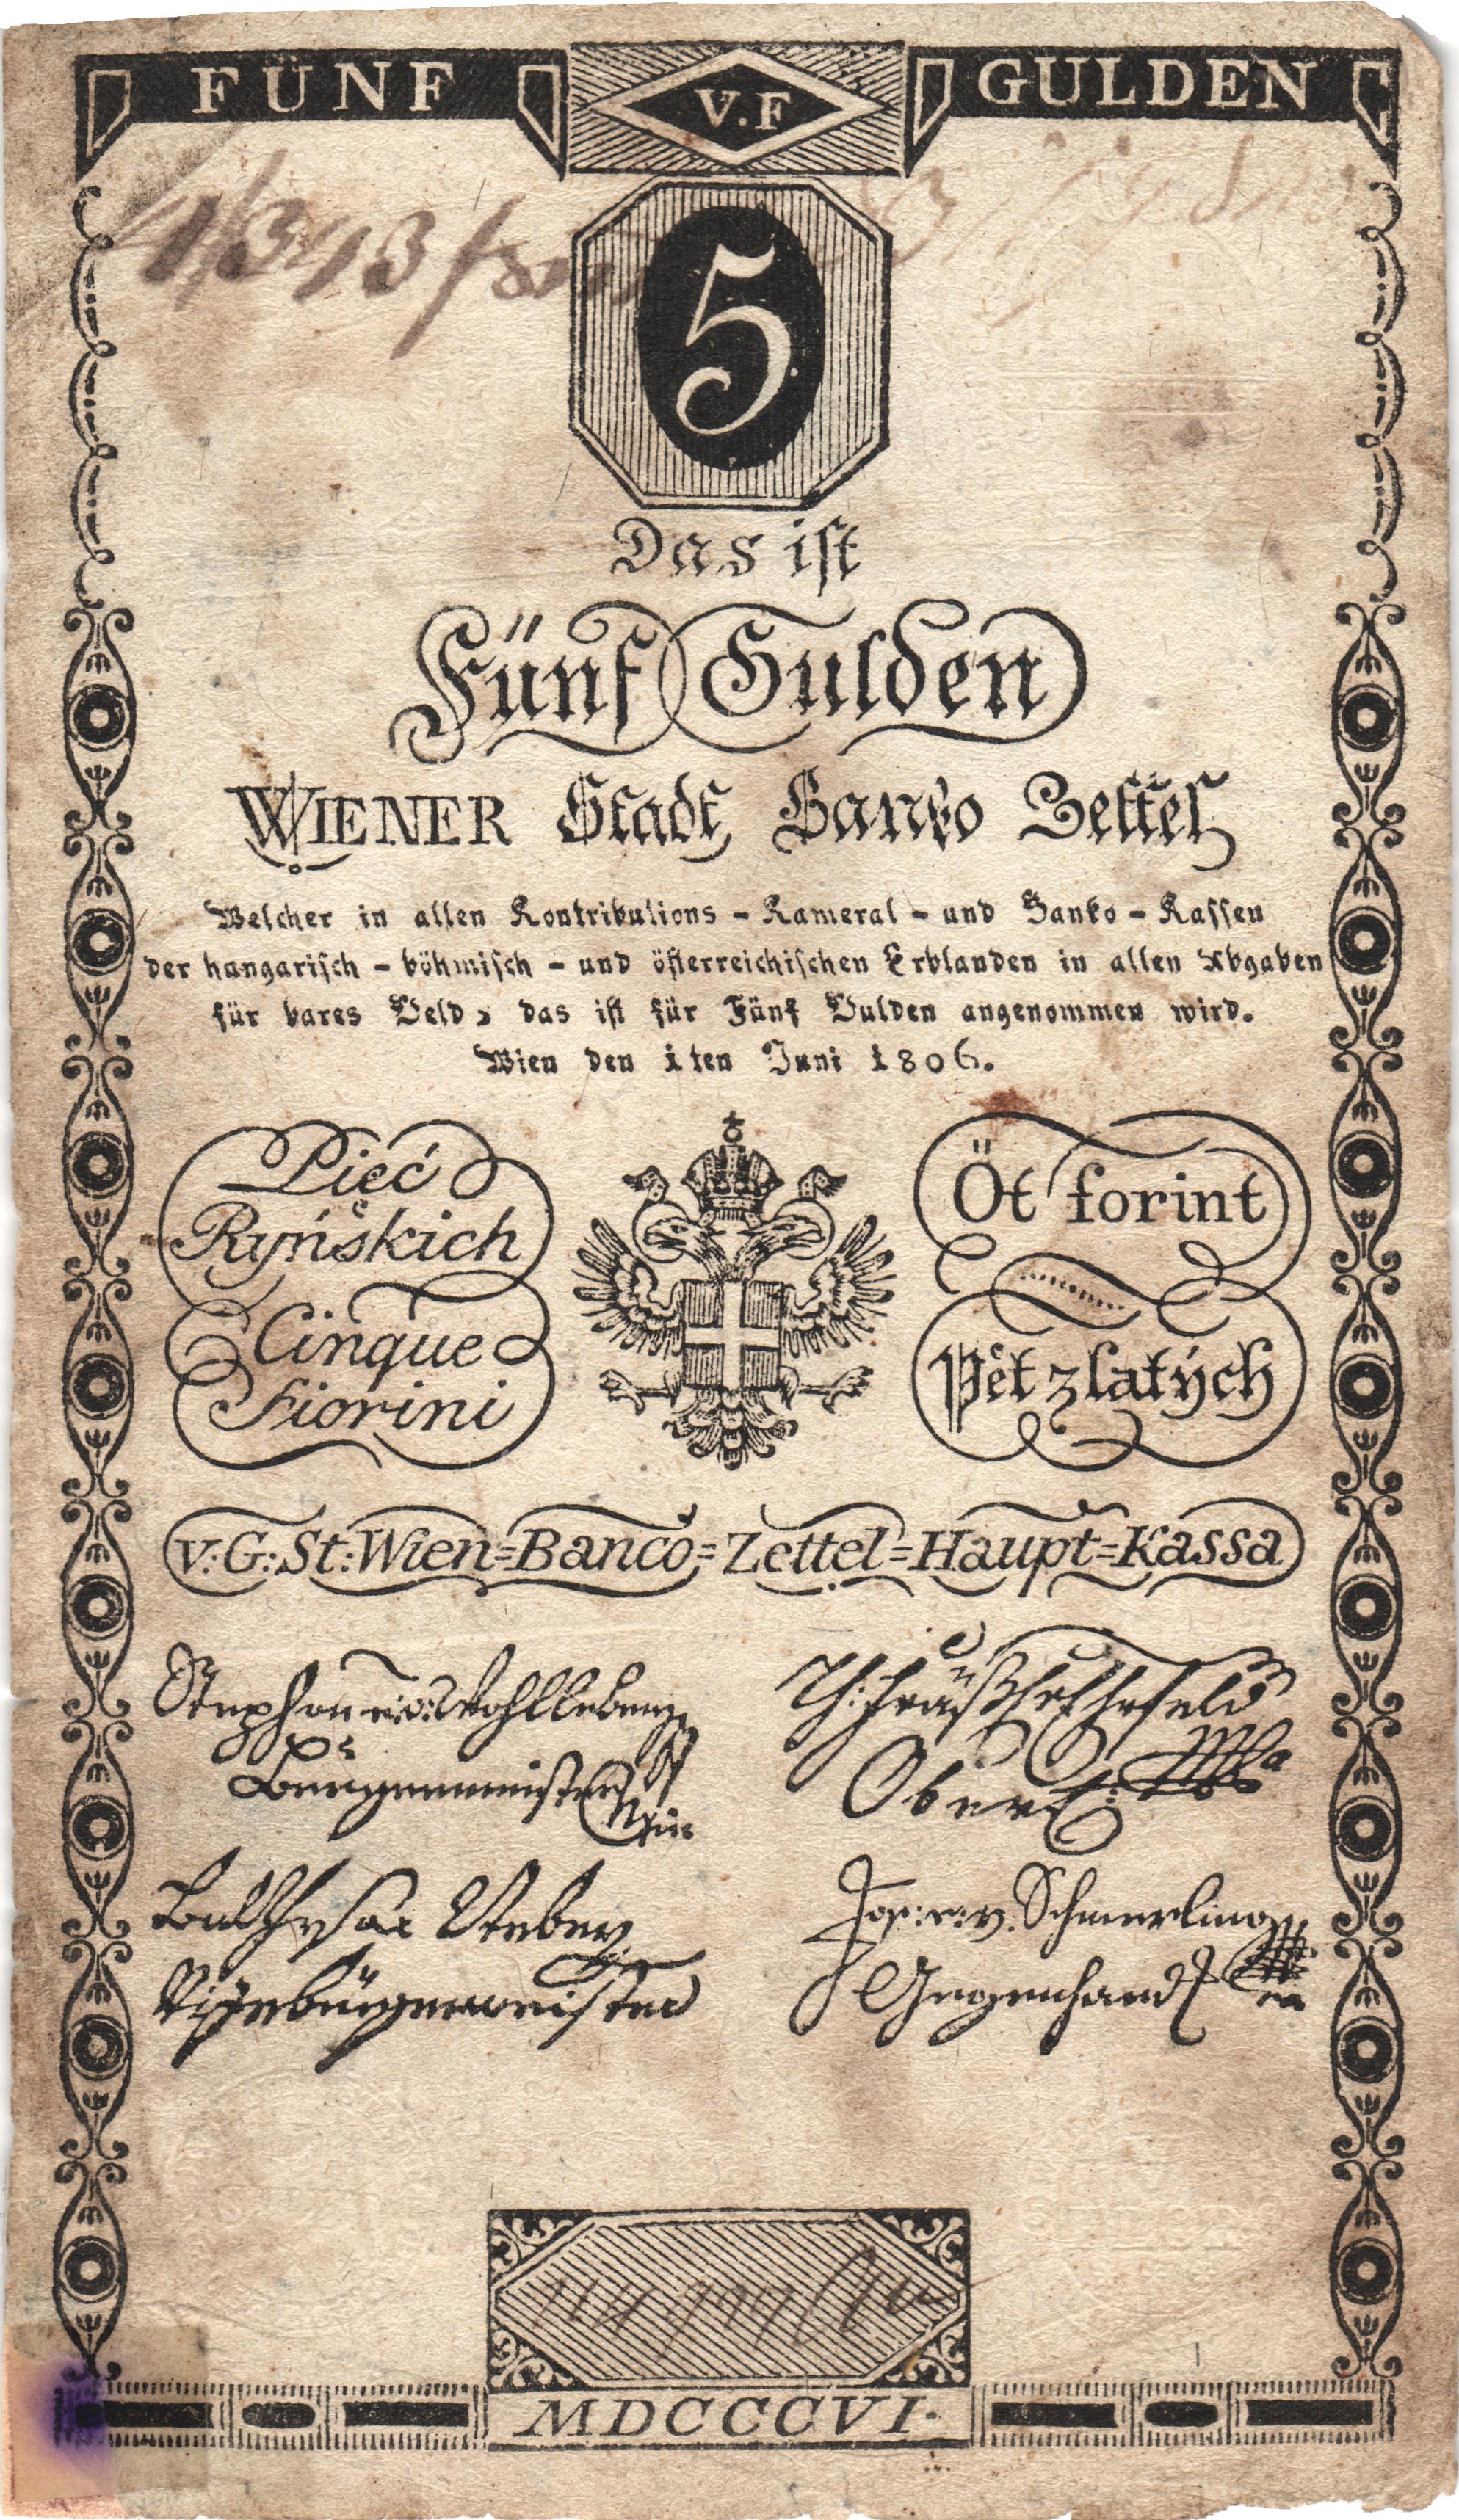 FÜNF V.F GULDEN
5
Das ist
Fünf Gulden
WIENER Stadt Banko Zettel
Welcher in allen Kontributions - Kameral - und Banko - Kassen
der hungarisch - böhmisch - und österreichischen Erblanden in allen Abgaben
für bares Geld, das ist für Fünf Gulden angenommen wird.
Wien den 1ten Juni 1806.
Pięć
Ryńskich
Cinque
Fiorini
Öt forint
Pět zlatých
V:G:St:Wien=Banco=Zettel=Haupt=Kassa
Stephan e:v: Wohlleben
Burgermeister
Ober
Jos: e: v: Schmerling
Gegenhand
Vizebürgermeister
MDCCCVI.